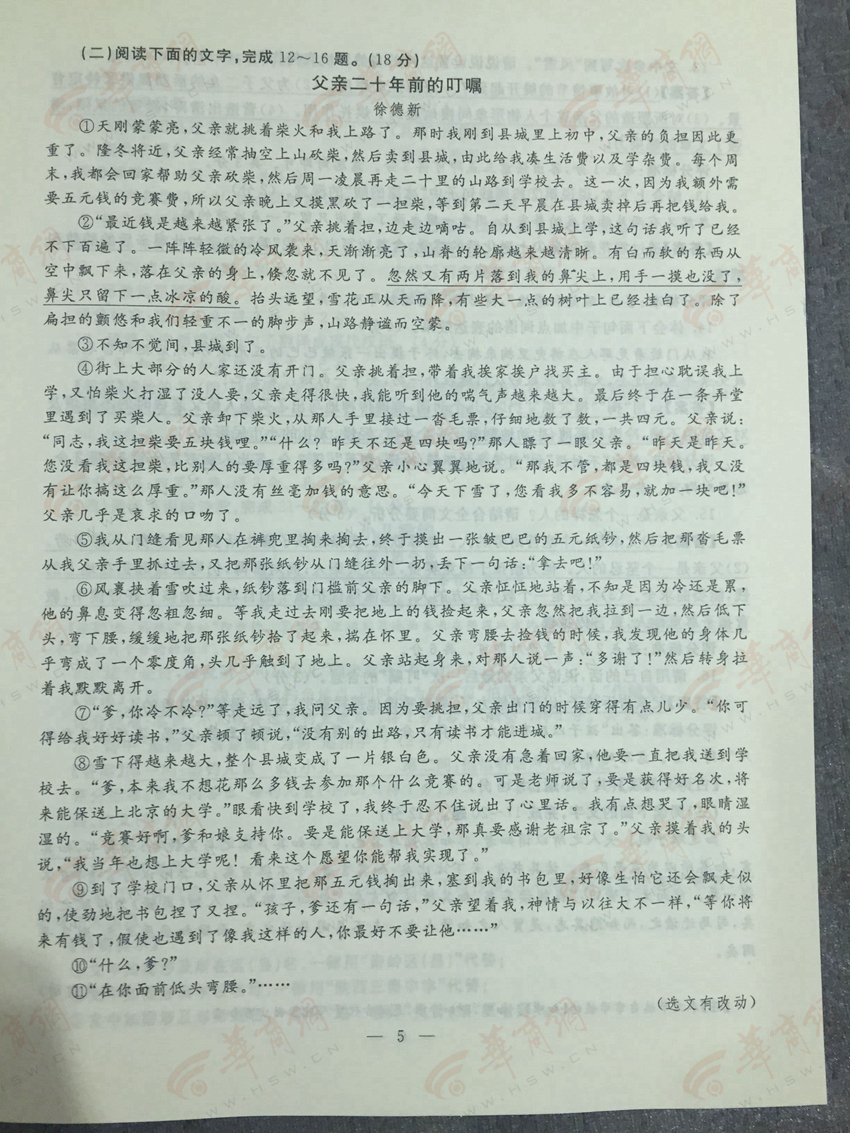 (二)阅读下面的文字,完成12～16题。(18分)
父亲二十年前的叮嘱
徐德新
①天刚蒙蒙亮,父亲就挑着柴火和我上路了。那时我刚到县城里上初中,父亲的负担因此更
重了。隆冬将近,父亲经常抽空上山砍柴,然后卖到县城,由此给我凑生活费以及学杂费。每个周
末,我都会回家帮助父亲砍柴,然后周一凌晨再走二十里的山路到学校去。这一次,因为我额外需
要五元钱的竞赛费,所以父亲晚上又摸黑砍了一担柴,等到第二天早晨在县城卖掉后再把钱给我。
②“最近钱是越来越紧张了。”父亲挑着担,边走边嘀咕。自从到县城上学,这句话我听了已经
不下百遍了。一阵阵轻微的冷风袭来,天渐渐亮了,山脊的轮廓越来越清晰。有白而软的东西从
空中飘下来,落在父亲的身上,倏忽就不见了。忽然又有两片落到我的鼻尖上,用手一摸也没了,
鼻尖只留下一点冰凉的酸。抬头远望,雪花正从天而降,有些大一点的树叶上已经挂白了。除了
扁担的颤悠和我们轻重不一的脚步声,山路静谧而空蒙。
③不知不觉间,县城到了。
④街上大部分的人家还没有开门。父亲挑着担,带着我挨家挨户找买主。由于担心耽误我上
学,又怕柴火打湿了没人要,父亲走得很快,我能听到他的喘气声越来越大。最后终于在一条弄堂
里遇到了买柴人。父亲卸下柴火,从那人手里接过一沓毛票,仔细地数了数,一共四元。父亲说:
“同志,我这担柴要五块钱哩。”“什么？昨天不还是四块吗?”那人瞟了一眼父亲。“昨天是昨天。
您没看我这担柴,比别人的要厚重得多吗?”父亲小心翼翼地说。“那我不管,都是四块钱,我又没
有让你搞这么厚重。”那人没有丝毫加钱的意思。“今天下雪了,您看我多不容易,就加一块吧!”
父亲几乎是哀求的口吻了。
⑤我从门缝看见那人在裤兜里掏来掏去,终于摸出一张皱巴巴的五元纸钞,然后把那沓毛票
从我父亲手里抓过去,又把那张纸钞从门缝往外一扔,丢下一句话:“拿去吧!”
⑥风裹挟着雪吹过来,纸钞落到门槛前父亲的脚下。父亲怔怔地站着,不知是因为冷还是累,
他的鼻息变得忽粗忽细。等我走过去刚要把地上的钱捡起来,父亲忽然把我拉到一边,然后低下
头,弯下腰,缓缓地把那张纸钞拾了起来,揣在怀里。父亲弯腰去捡钱的时候,我发现他的身体几
乎弯成了一个零度角,头几乎触到了地上。父亲站起身来,对那人说一声:“多谢了!”然后转身拉
着我默默离开。
⑦“爹,你冷不冷?”等走远了,我问父亲。因为要挑担,父亲出门的时候穿得有点儿少。“你可
得给我好好读书,”父亲顿了顿说,“没有别的出路,只有读书才能进城。”
⑧雪下得越来越大,整个县城变成了一片银白色。父亲没有急着回家,他要一直把我送到学
校去。“爹,本来我不想花那么多钱去参加那个什么竞赛的。可是老师说了,要是获得好名次,将
来能保送上北京的大学。”眼看快到学校了,我终于忍不住说出了心里话。我有点想哭了,眼睛湿
湿的。“竞赛好啊,爹和娘支持你。要是能保送上大学,那真要感谢老祖宗了。”父亲摸着我的头
说,“我当年也想上大学呢！看来这个愿望你能帮我实现了。”
⑨到了学校门口,父亲从怀里把那五元钱掏出来,塞到我的书包里,好像生怕它还会飘走似
的,使劲地把书包捏了又捏。“孩子,爹还有一句话,”父亲望着我,神情与以往大不一样,“等你将
来有钱了,假使也遇到了像我这样的人,你最好不要让他……”
⑩“什么,爹?”
⑪“在你面前低头弯腰。”……
(选文有改动)
— 5 —
华商网
WWW.HSW.CN